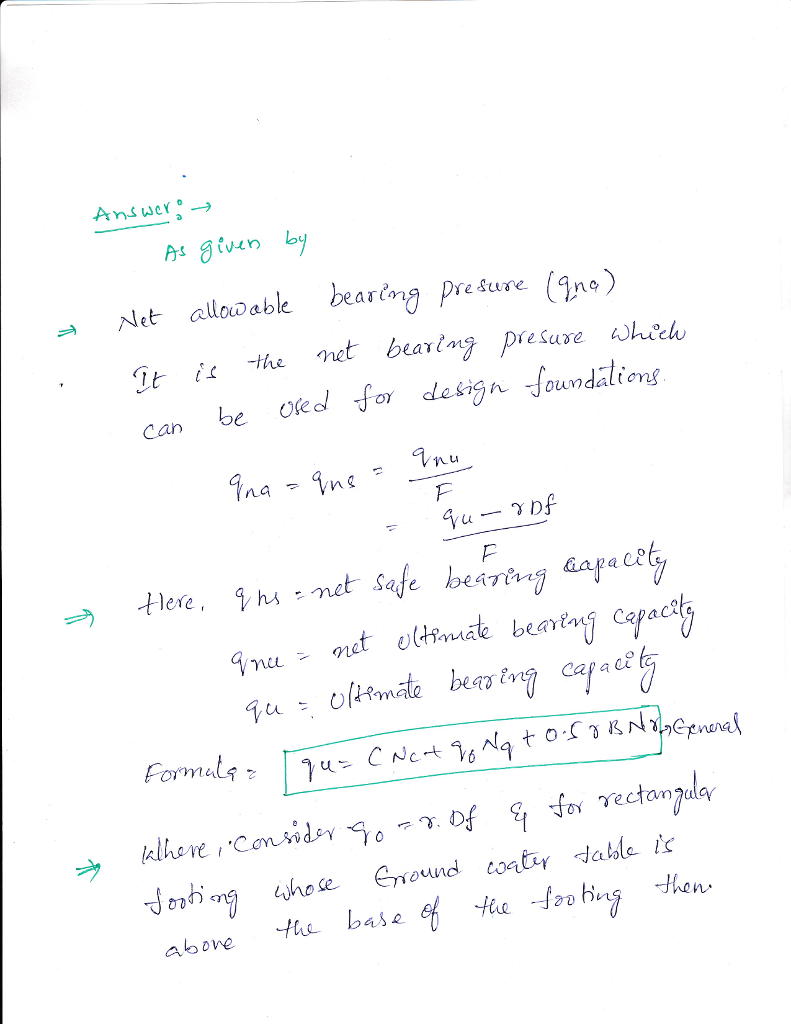 Answer: →
As given by
⇒ Net allowable bearing presure (qna)
It is the net bearing presure which
can be used for design foundations.
qna = qns = qnu / F
= qu - γDf / F
⇒ Here, qns = net safe bearing capacity
qnu = net ultimate bearing capacity
qu = ultimate bearing capacity
Formula = qu = CNc + q0 Nq + 0.5 γ B Nγ → General
⇒ Where, consider q0 = γ. Df & for rectangular
footing whose Ground water table is
above the base of the footing then.